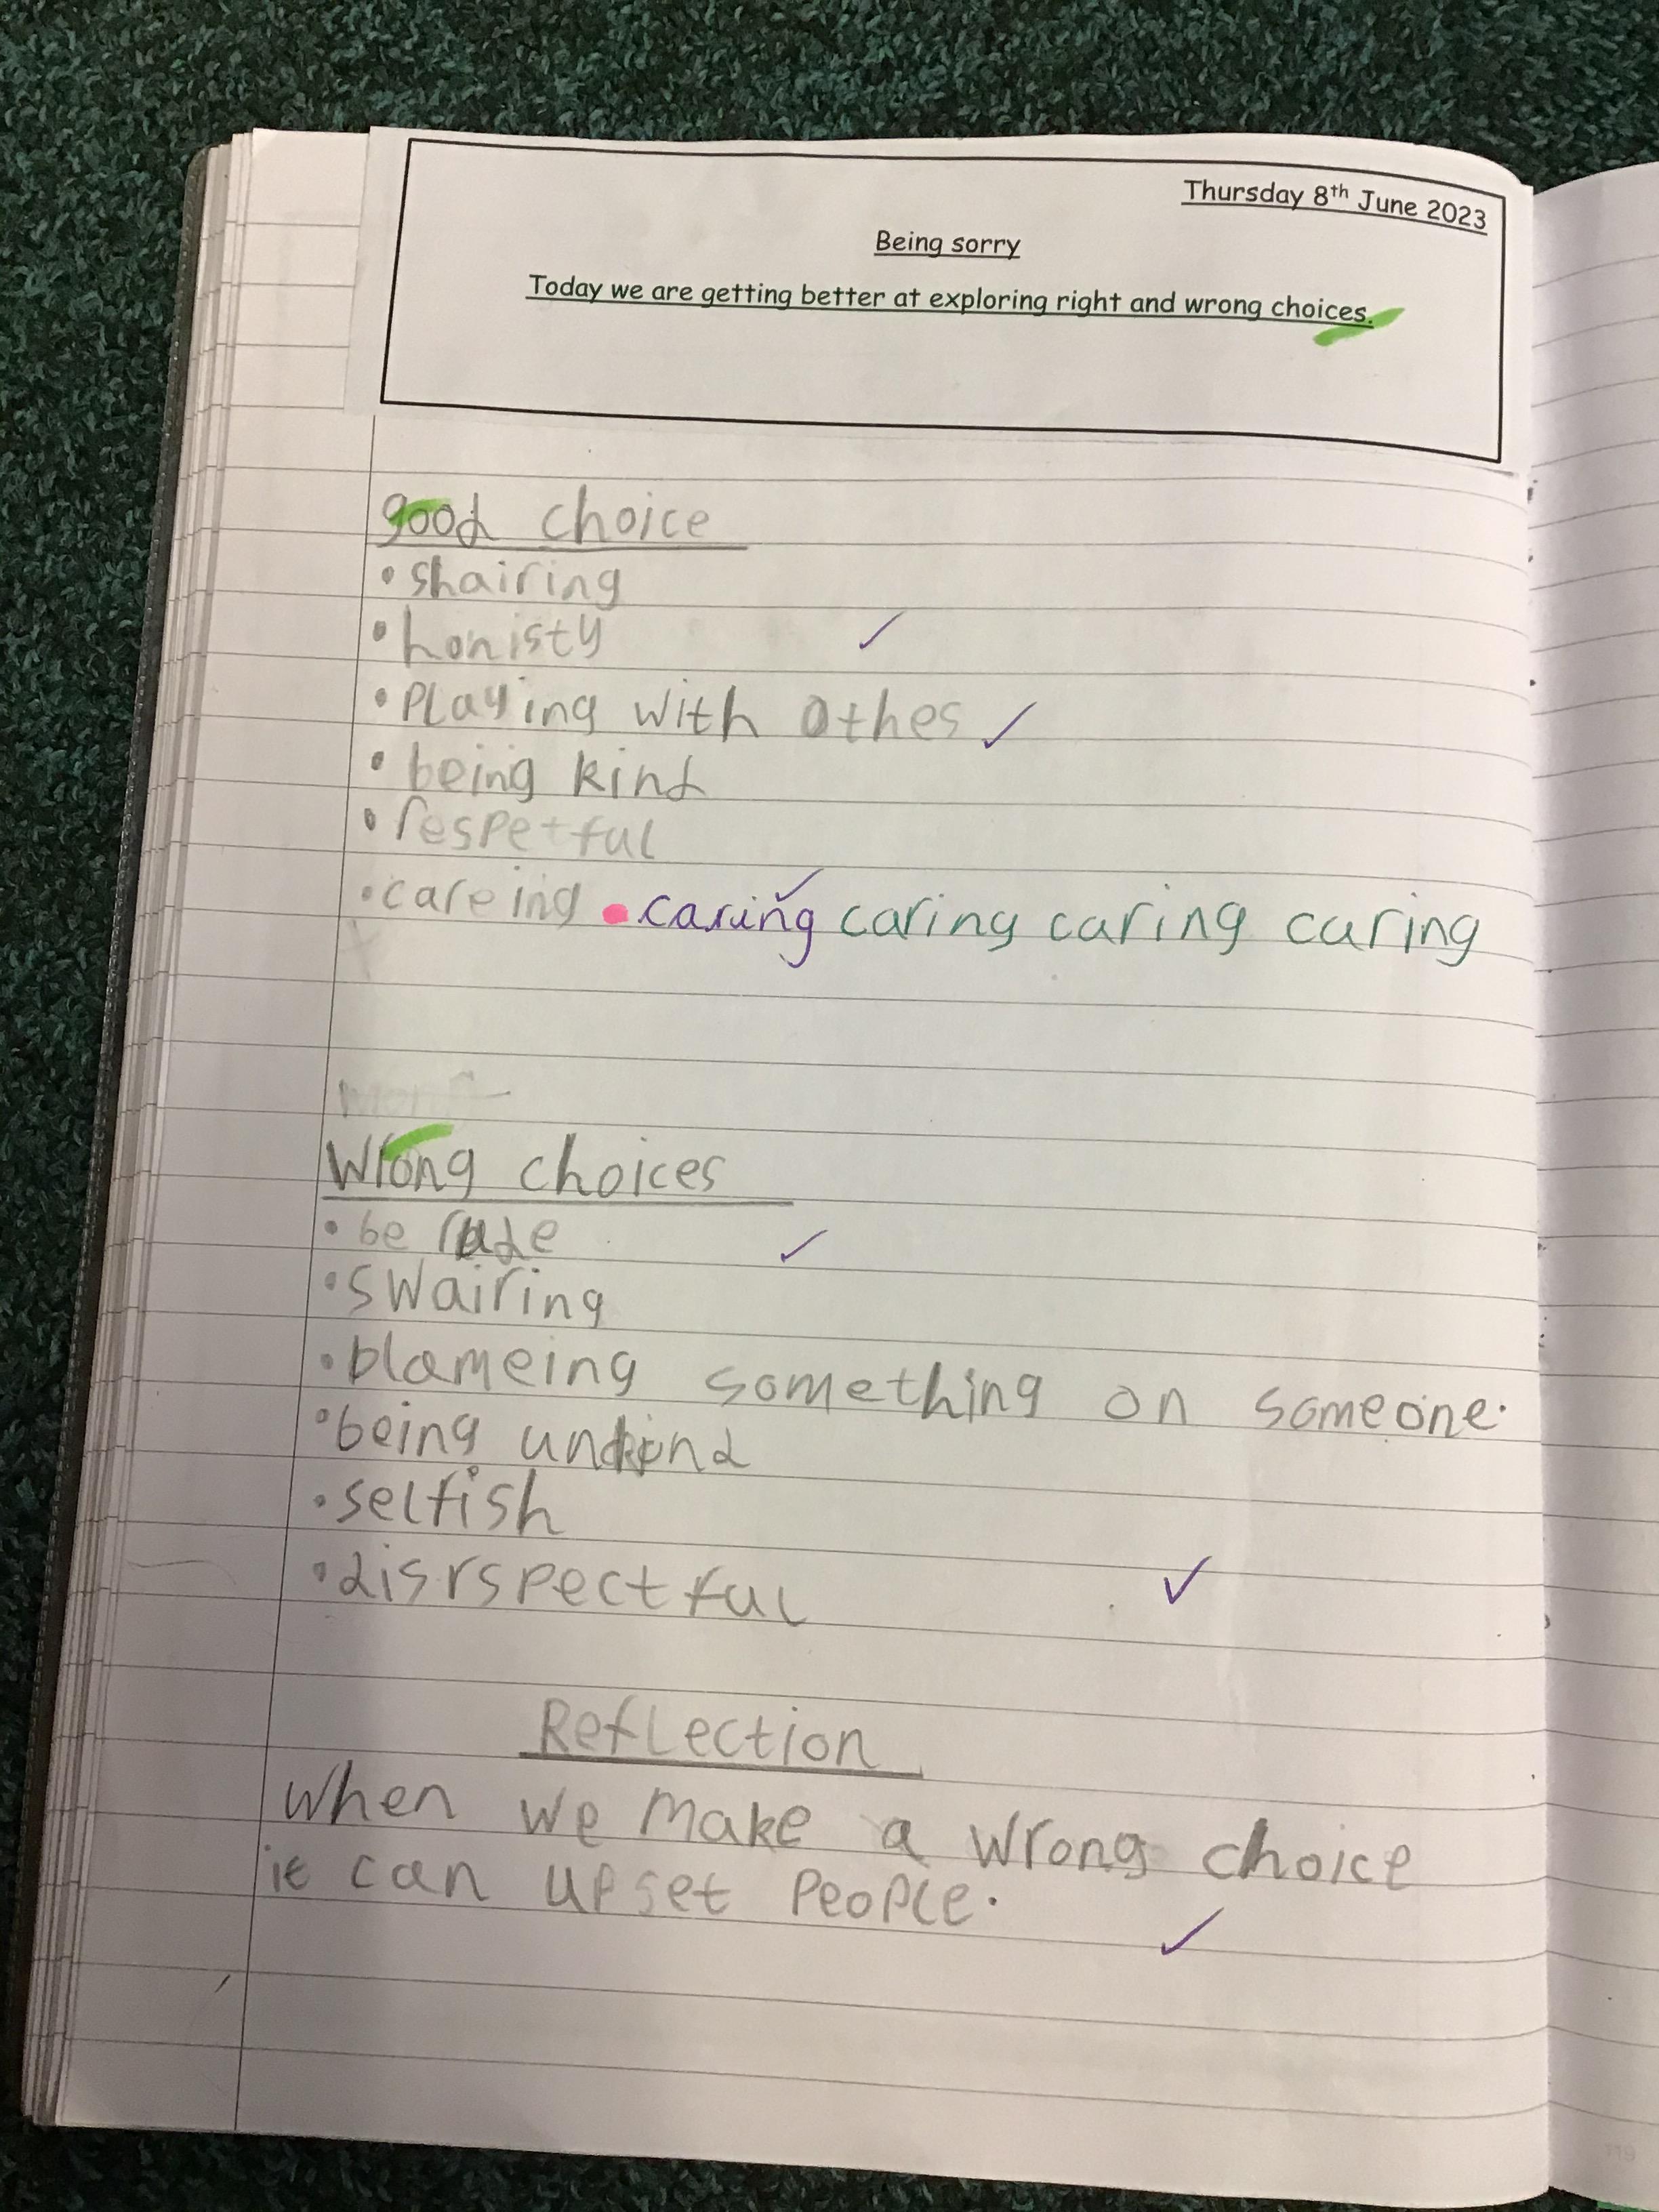 Thursday 8th June 2023
Being sorry
Today we are getting better at exploring right and wrong choices.
good choice
• shairing
• honisty
• Playing with othes
• being kind
• respetful
• careing • caring caring caring caring
Wrong choices
• be rude
• swairing
• blameing something on someone.
• being unkind
• selfish
• disrspectful
Reflection
when we make a wrong choice
it can upset people.